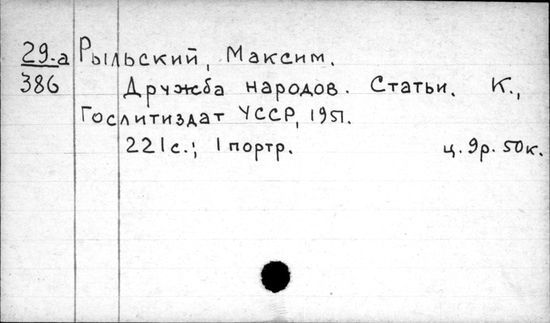 29-а Рыльский, Максим.
386 Дружба народов. Статьи. К.,
Гослитиздат УССР, 1951.
221с.; 1 портр. ц. 9р. 50к.